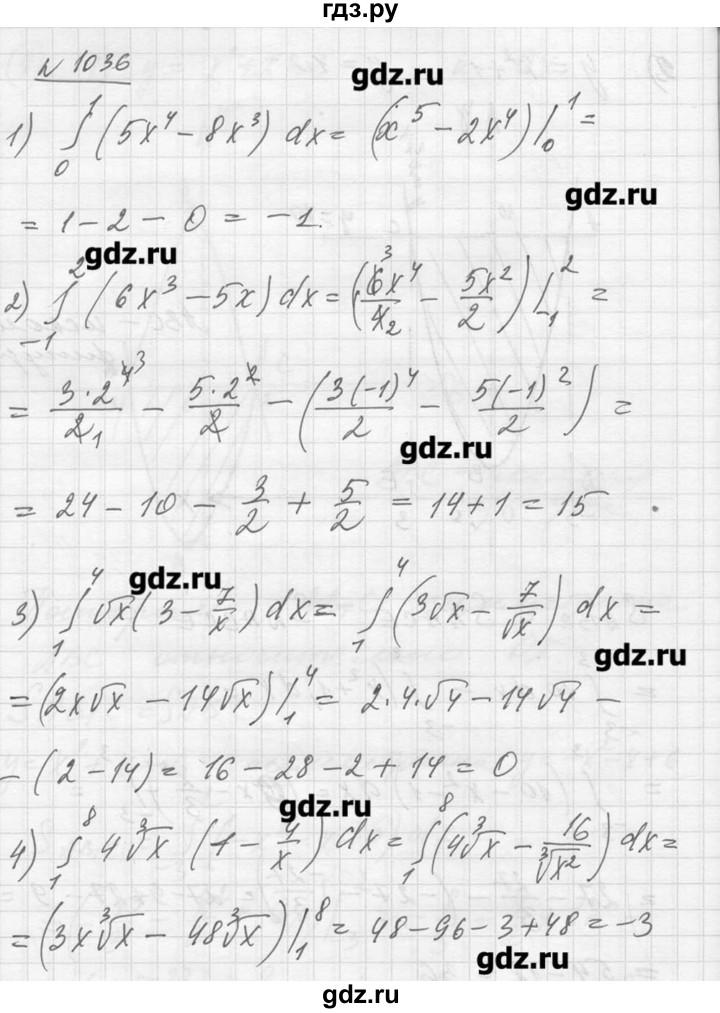 гдз.ру
№ 1036
gdz.ru
1) ∫₀¹ (5x⁴ − 8x³) dx = (x⁵ − 2x⁴)|₀¹ =
gdz.ru
= 1 − 2 − 0 = −1.
gdz.ru
2) ∫₋₁² (6x³ − 5x) dx = (6x⁴/4 − 5x²/2)|₋₁² =
= 3·2⁴/2 − 5·2²/2 − (3(−1)⁴/2 − 5(−1)²/2) =
gdz.ru
= 24 − 10 − 3/2 + 5/2 = 14 + 1 = 15.
gdz.ru
3) ∫₁⁴ √x (3 − 7/x) dx = ∫₁⁴ (3√x − 7/√x) dx =
gdz.ru
= (2x√x − 14√x)|₁⁴ = 2·4·√4 − 14√4 −
− (2 − 14) = 16 − 28 − 2 + 14 = 0
gdz.ru
4) ∫₁⁸ 4∛x (1 − 4/x) dx = ∫₁⁸ (4∛x − 16/∛x²) dx =
= (3x∛x − 48∛x)|₁⁸ = 48 − 96 − 3 + 48 = −3
gdz.ru
gdz.ru